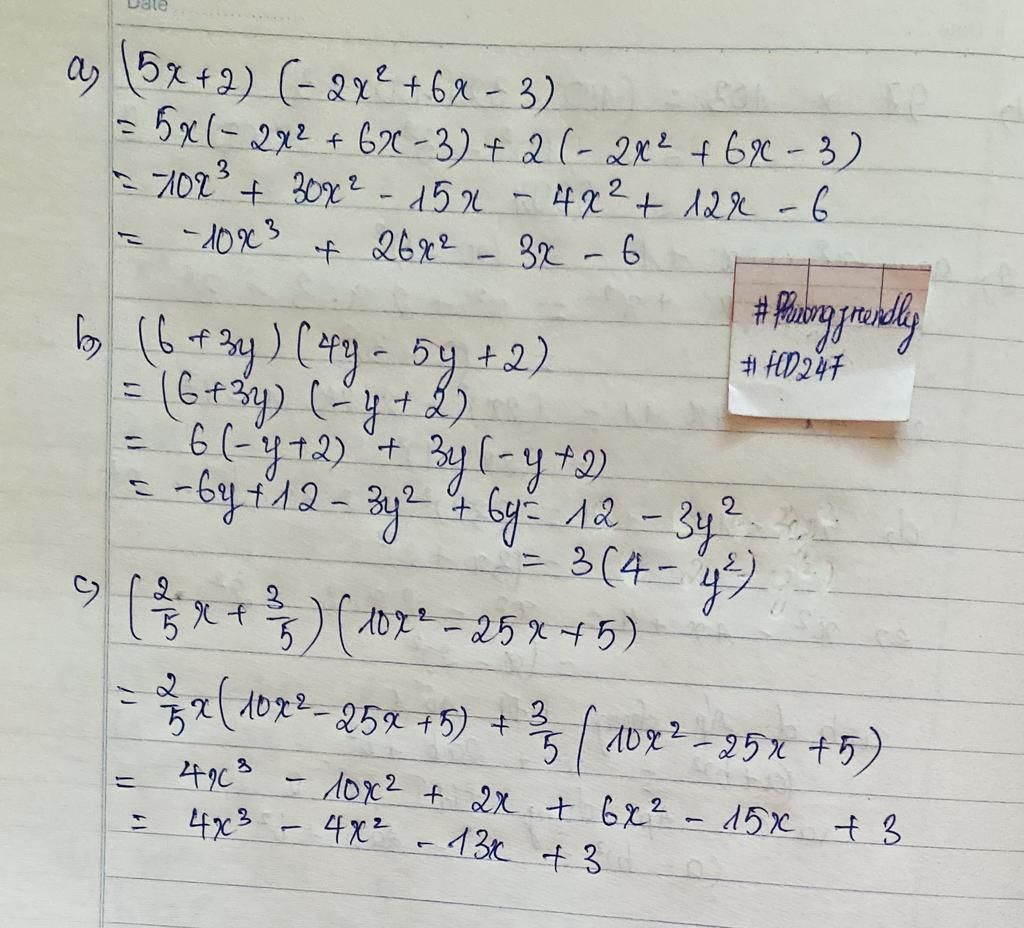 Date
a) (5x+2) (-2x² + 6x - 3)
= 5x(-2x² + 6x - 3) + 2(-2x² + 6x - 3)
= -10x³ + 30x² - 15x - 4x² + 12x - 6
= -10x³ + 26x² - 3x - 6
#Phuongfriendly
#HD247
b) (6 + 3y) (4y - 5y + 2)
= (6+3y) (-y + 2)
= 6(-y+2) + 3y(-y+2)
= -6y + 12 - 3y² + 6y = 12 - 3y²
= 3(4 - y²)
c) (2/5 x + 3/5) (10x² - 25x + 5)
= 2/5 x(10x² - 25x + 5) + 3/5 (10x² - 25x + 5)
= 4x³ - 10x² + 2x + 6x² - 15x + 3
= 4x³ - 4x² - 13x + 3